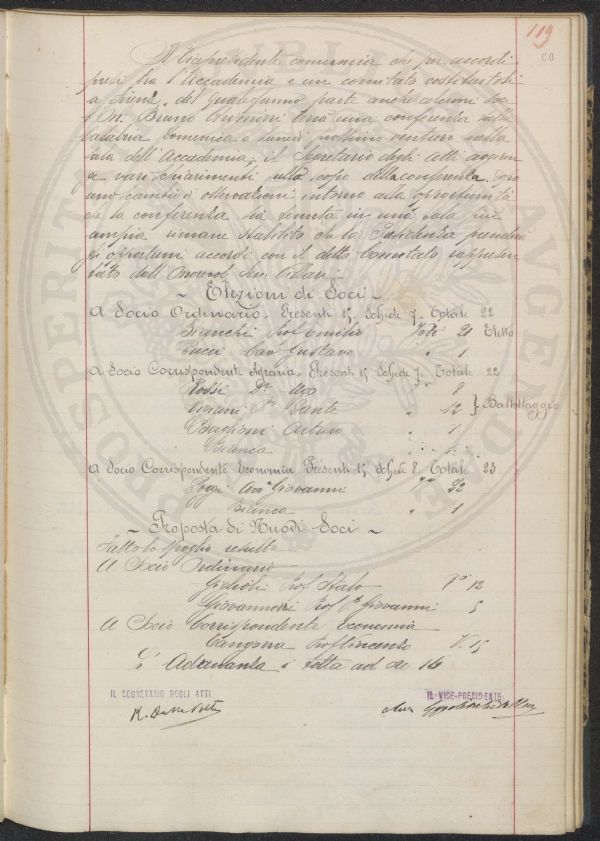 119
60
Il Vicepresidente comunica che per accordi
presi tra l'Accademia e un comitato costituitosi
a Firenze, del quale fanno parte anche alcuni Soci
l'On. Bruno terrà una conferenza sulla
Calabria Domenica o Lunedì prossimo venturo nella
sala dell'Accademia; il Segretario degli atti aggiunge
vari schiarimenti sullo scopo della conferenza, dopo
uno scambio di osservazioni intorno alla opportunità
che la conferenza sia tenuta in una sala più
ampia rimane stabilito che la Presidenza prenderà
gli opportuni accordi con il detto Comitato rappresen
tato dall'Onorevole Sen. Villari.
~ Elezioni di Soci ~
A Socio Ordinario. Presenti 15, Schede 7. Totale 22
Bianchi Prof Emilio Voti 21 Eletto
Pucci Cav Gustavo " 1
A Socio Corrispondente Agraria. Presenti 15 Schede 7. Totale 22
Rossi Dr " 8
Dr Dante " 12 } Ballottaggio
Arturo " 1
Bianca " 1
A Socio Corrispondente Economia Presenti 15, Schede 8, Totale 23
Poggi Avv Giovanni " 22
Bianca " 1
~ Proposta di Nuovi Soci ~
Fatto lo spoglio resulta
A Socio Ordinario
Giglioli Prof Italo V. 12
Giovannozzi Prof P. Giovanni 5
A Socio Corrispondente Economia
Tangorra Prof Vincenzo V. 15
L'Adunanza è tolta ad ore 16
IL SEGRETARIO DEGLI ATTI
IL VICE-PRESIDENTE
PROSPERITA